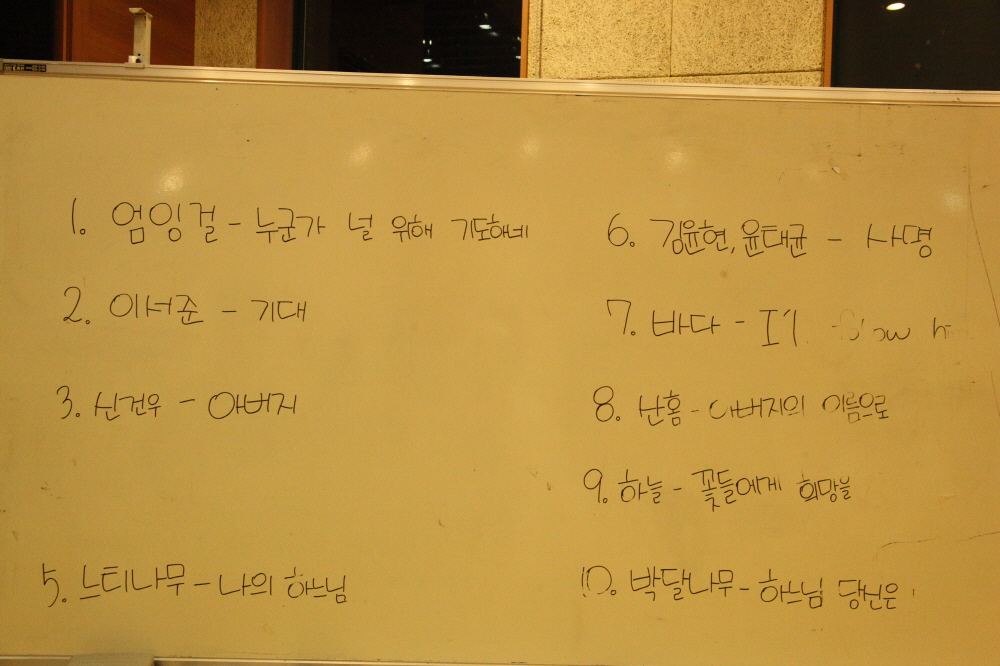 1. 엄잉걸 - 누군가 널 위해 기도하네
2. 이서준 - 기대
3. 신건우 - 아버지
5. 느티나무 - 나의 하느님
6. 김윤현, 윤태균 - 사명
7. 바다 - I'l
8. 난홈 - 아버지의 이름으로
9. 하늘 - 꽃들에게 희망을
10. 박달나무 - 하느님 당신은